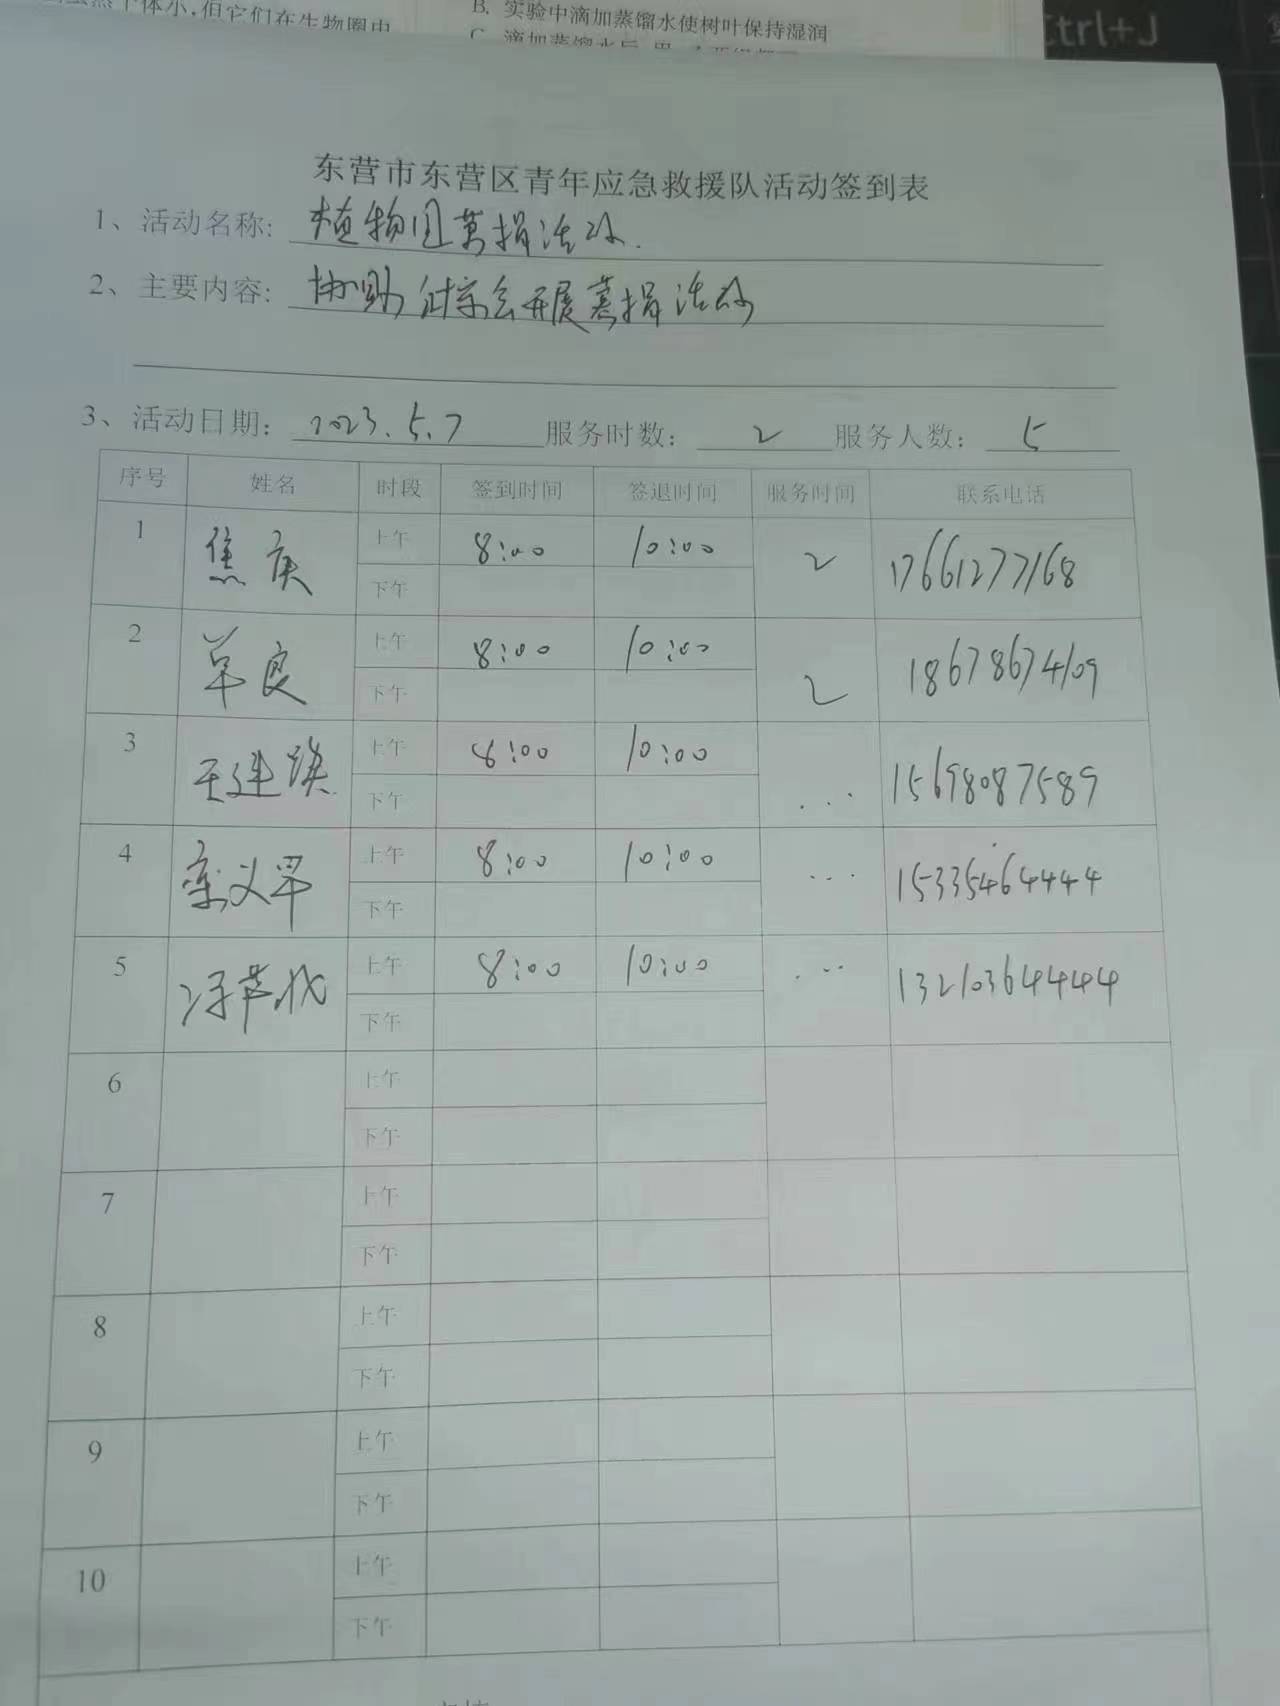 体小,但它们在生物圈中
B. 实验中滴加蒸馏水使树叶保持湿润
C. 滴加蒸馏水后
Ctrl+L
东营市东营区青年应急救援队活动签到表
1、活动名称: 植物园募捐活动.
2、主要内容: 协助 会开展募捐活动
3、活动日期: 2023.5.7 服务时数: 2 服务人数: 5
序号 姓名 时段 签到时间 签退时间 服务时间 联系电话
1 焦庚 上午 8:00 10:00 2 17661277168
下午
2 单良 上午 8:00 10:00 2 18678674109
下午
3 王建 上午 8:00 10:00 ... 15698087589
下午
4 义军 上午 8:00 10:00 ... 15335464444
下午
5 上午 8:00 10:00 ... 13210364444
下午
6 上午
下午
7 上午
下午
8 上午
下午
9 上午
下午
10 上午
下午